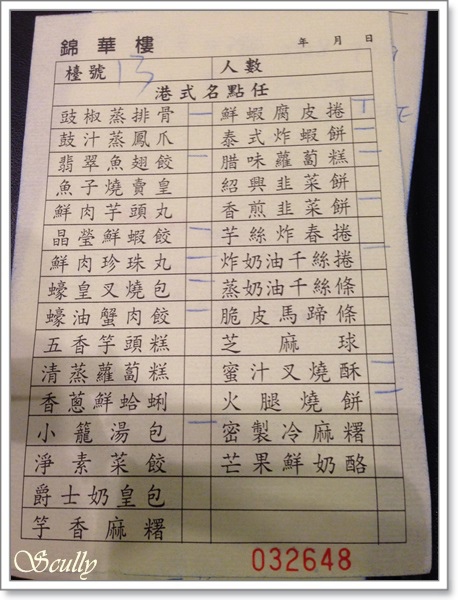 錦華樓 年 月 日
檯號 13 人數
港式名點任
豉椒蒸排骨 鮮蝦腐皮捲
鼓汁蒸鳳爪 泰式炸蝦餅
翡翠魚翅餃 腊味蘿蔔糕
魚子燒賣皇 紹興韭菜餅
鮮肉芋頭丸 香煎韭菜餅
晶瑩鮮蝦餃 芋絲炸春捲
鮮肉珍珠丸 炸奶油千絲捲
蠔皇叉燒包 蒸奶油千絲條
蠔油蟹肉餃 脆皮馬蹄條
五香芋頭糕 芝麻球
清蒸蘿蔔糕 蜜汁叉燒酥
香蔥鮮蛤蜊 火腿燒餅
小籠湯包 密製冷麻糬
淨素菜餃 芒果鮮奶酪
爵士奶皇包
竽香麻糬
032648
Scully